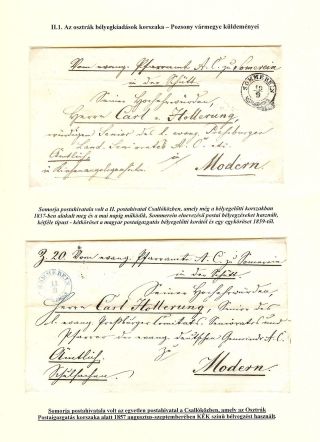 II.1. Az osztrák bélyegkiadások korszaka – Pozsony vármegye küldeményei
Vom evang. Pfarramte A. C. zu Somerein
in der Schütt.
SOMMEREIN
12
9
Seiner Hochehrwürden,
Herrn Carl v. Hollerung,
würdigen Senior des k. evang. Preßburger
Land. Seniorats A. C. etc
Amtlich
in Kirchenangelegenheiten.
Modern.
Somorja postahivatala volt a II. postahivatal Csallóközben, amely még a bélyegelőtti korszakban
1837-ben alakult meg és a mai napig működik, Sommerein elnevezésű postai bélyegzéseket használt,
kétféle típust - kétköröset a magyar postaigazgatás bélyegelőtti korától és egy egyköröset 1839-től.
Z. 20. Vom evang. Pfarramte A. C. zu Somerein
in der Schütt.
SOMMEREIN
Seiner Hochehrwürden,
Herrn Carl Hollerung, Senior des
k. evang. Preßburger Comitats Seniorates und
Pfarrer der evang. deutschen Gemeinde A. C.
Amtlich
Schulsachen.
Modern.
Somorja postahivatala volt az egyetlen postahivatal a Csallóközben, amely az Osztrák
Postaigazgatás korszaka alatt 1857 augusztus-szeptemberében KÉK színű bélyegzést használt.